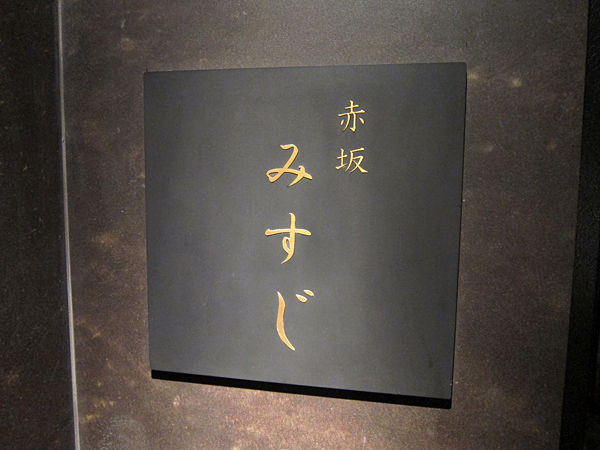 赤坂
みすじ